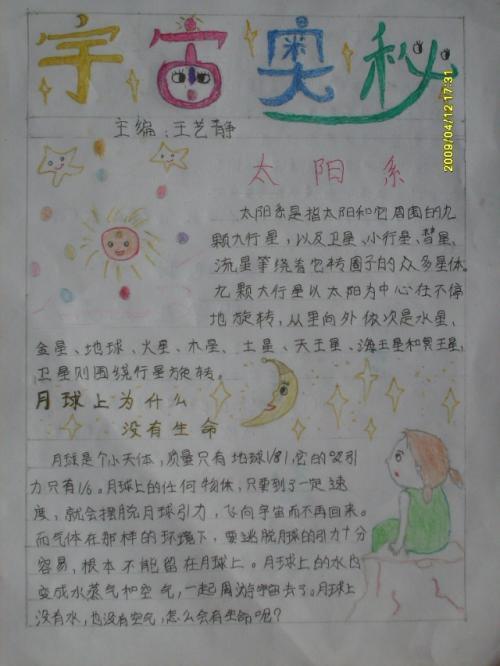 宇宙奥秘
主编:王艺静
2009/04/12 17:31
太阳系
太阳系是指太阳和它周围的九
颗大行星,以及卫星、小行星、彗星、
流星等绕着它转圈子的众多星体。
九颗大行星以太阳为中心在不停
地旋转,从里向外依次是水星、
金星、地球、火星、木星、土星、天王星、海王星和冥王星,
卫星则围绕行星旋转。
月球上为什么
没有生命
月球是个小天体,质量只有地球1/81,它的吸引
力只有1/6。月球上的任何物体,只要到了一定速
度,就会摆脱月球引力,飞向宇宙而不再回来。
而气体在那样的环境下,要逃脱月球的引力十分
容易,根本不能留在月球上。月球上的水因
变成水蒸气和空气,一起周游宇宙去了。月球上
没有水,也没有空气,怎么会有生命呢?